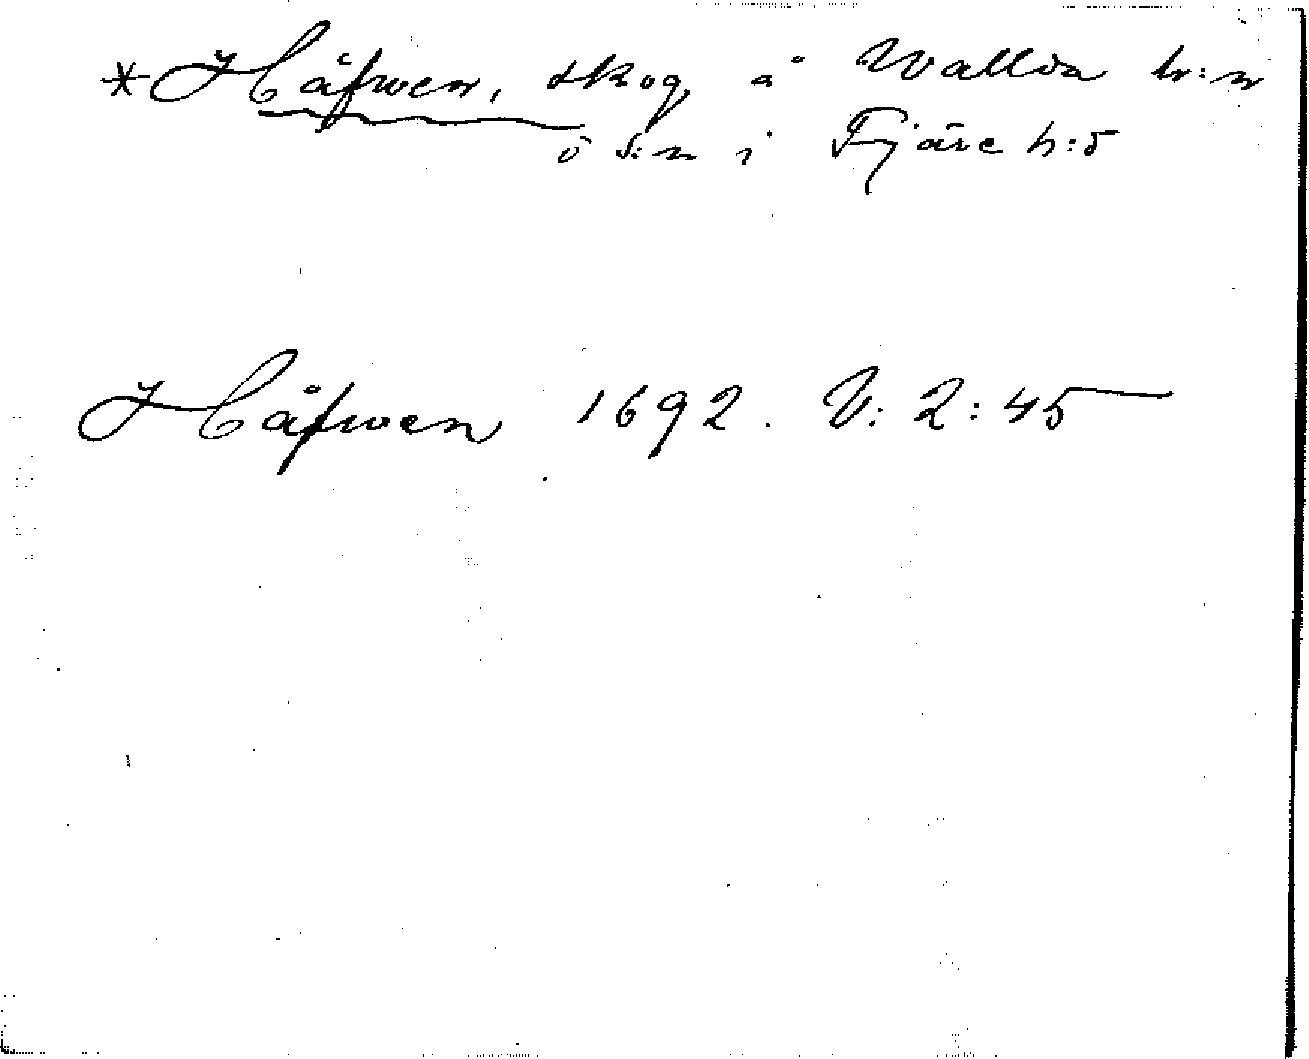 * Håfwen, skog å Wallda hr:n
o s:n i Fjäre h:d
Håfwen 1692. V: 2: 45